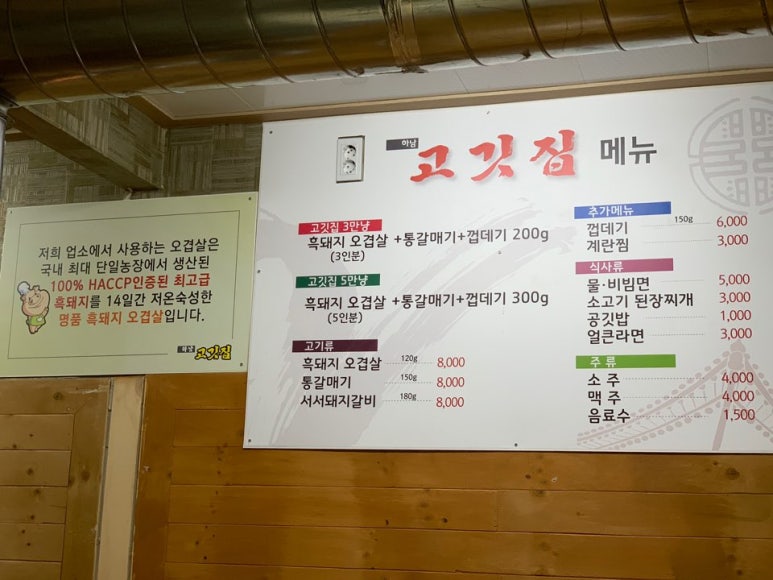 저희 업소에서 사용하는 오겹살은
국내 최대 단일농장에서 생산된
100% HACCP인증된 최고급
흑돼지를 14일간 저온숙성한
명품 흑돼지 오겹살입니다.
하남 고깃집
하남 고깃집 메뉴
고깃집 3만냥
흑돼지 오겹살 +통갈매기+껍데기 200g
(3인분)
고깃집 5만냥
흑돼지 오겹살 +통갈매기+껍데기 300g
(5인분)
고기류
흑돼지 오겹살 120g 8,000
통갈매기 150g 8,000
서서돼지갈비 180g 8,000
추가메뉴
껍데기 150g 6,000
계란찜 3,000
식사류
물·비빔면 5,000
소고기 된장찌개 3,000
공깃밥 1,000
얼큰라면 3,000
주 류
소 주 4,000
맥 주 4,000
음료수 1,500